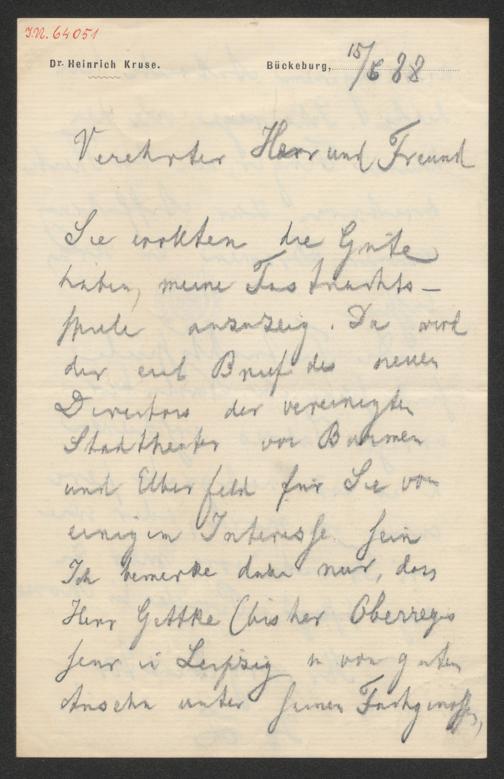 I.N. 64051
Dr. Heinrich Kruse.
Bückeburg, 15/6 88
Verehrter Herr und Freund
Sie wollten die Güte
haben, meine Fastnachts-
spiele anzuzeig. Da wird
der eil Brief des neuen
Directors der vereinigten
Stadttheater von Barmen
und Elberfeld für Sie von
einigem Interesse sein
Ich bemerke dabei nur, dass
Herr Gettke (bisher Oberregis
seur in Leipzig u von gutem
Ansehn unter seinen Fachgenossen,